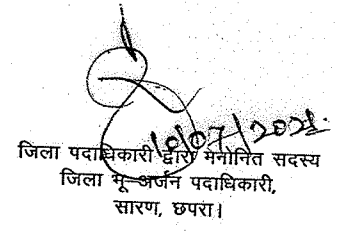 10/07/2021.
जिला पदाधिकारी द्वारा मनोनित सदस्य
जिला भू-अर्जन पदाधिकारी,
सारण, छपरा।